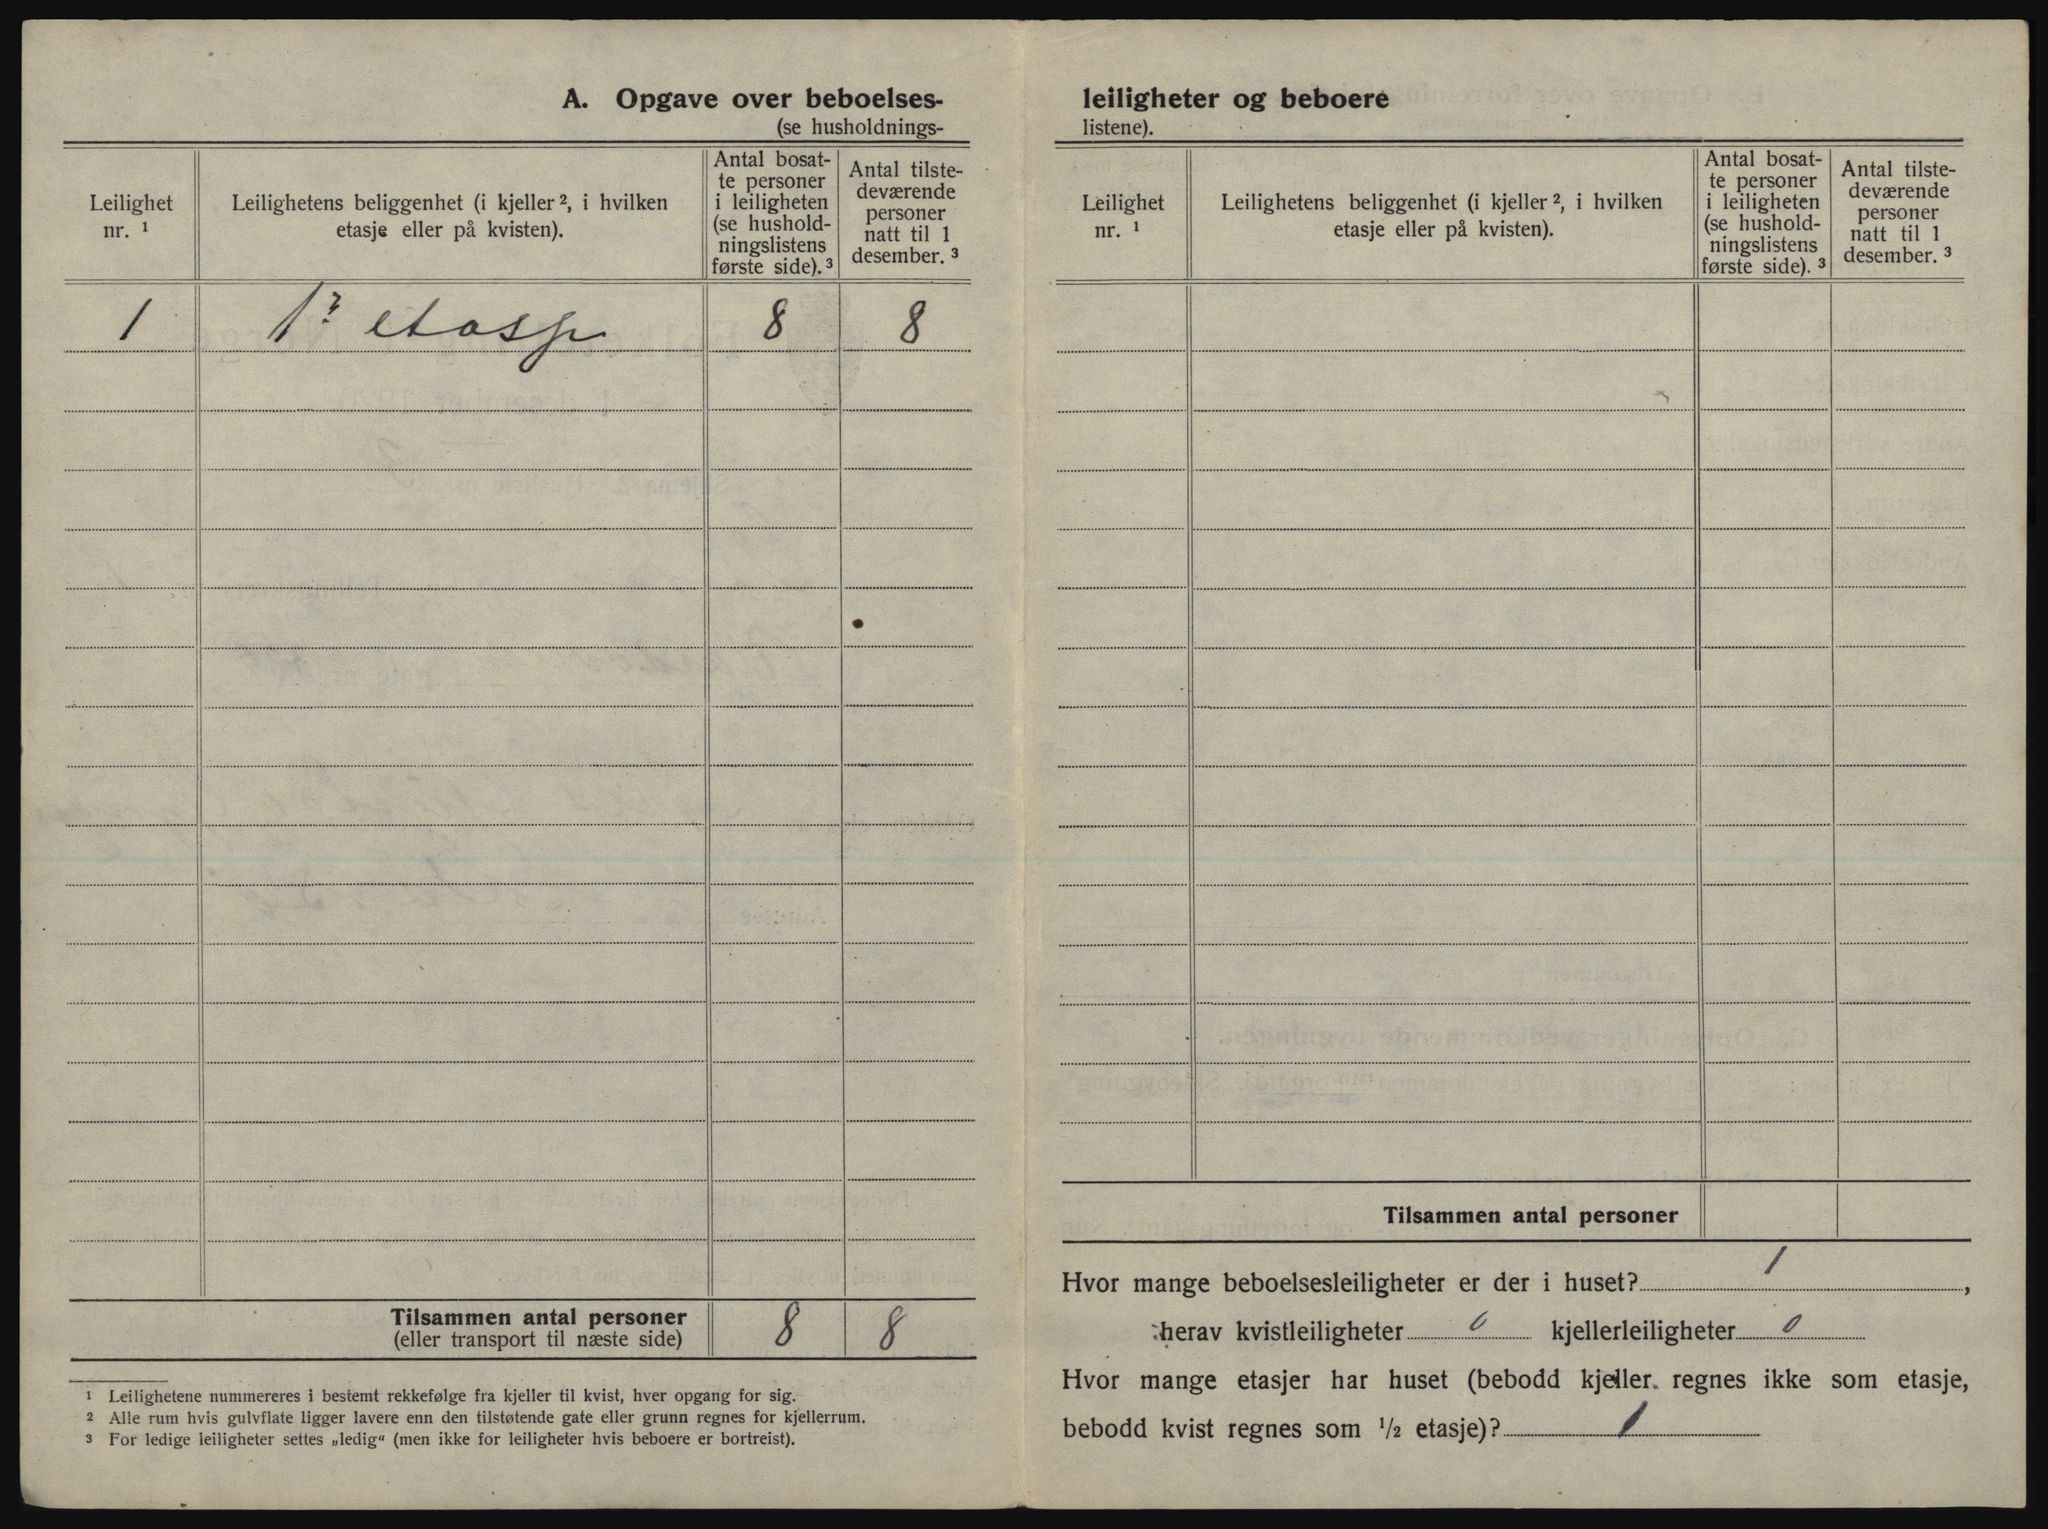 A. Opgave over beboelses-
(se husholdnings-
Leilighet
nr. ¹
Leilighetens beliggenhet (i kjeller ², i hvilken
etasje eller på kvisten).
Antal bosat-
te personer
i leiligheten
(se hushold-
ningslistens
første side). ³
Antal tilste-
deværende
personer
natt til 1
desember. ³
1 etasje 8 8
Tilsammen antal personer 8 8
(eller transport til næste side)
¹ Leilighetene nummereres i bestemt rekkefølge fra kjeller til kvist, hver opgang for sig.
² Alle rum hvis gulvflate ligger lavere enn den tilstøtende gate eller grunn regnes for kjellerrum.
³ For ledige leiligheter settes „ledig“ (men ikke for leiligheter hvis beboere er bortreist).
leiligheter og beboere
listene).
Leilighet
nr. ¹
Leilighetens beliggenhet (i kjeller ², i hvilken
etasje eller på kvisten).
Antal bosat-
te personer
i leiligheten
(se hushold-
ningslistens
første side). ³
Antal tilste-
deværende
personer
natt til 1
desember. ³
Tilsammen antal personer
Hvor mange beboelsesleiligheter er der i huset? 1,
herav kvistleiligheter 0 kjellerleiligheter 0
Hvor mange etasjer har huset (bebodd kjeller regnes ikke som etasje,
bebodd kvist regnes som ½ etasje)? 1